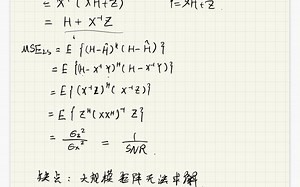 = X⁻¹(XH+Z)    Y=XH+Z
= H + X⁻¹Z
MSE_LS = E {(H-Ĥ)ᴴ(H-Ĥ)}
= E {(H-X⁻¹Y)ᴴ(H-X⁻¹Y)}
= E {(X⁻¹Z)ᴴ(X⁻¹Z)}
= E {Zᴴ(XXᴴ)⁻¹Z}
= σz²/σx² = 1/SNR
缺点：大规模矩阵无法求解